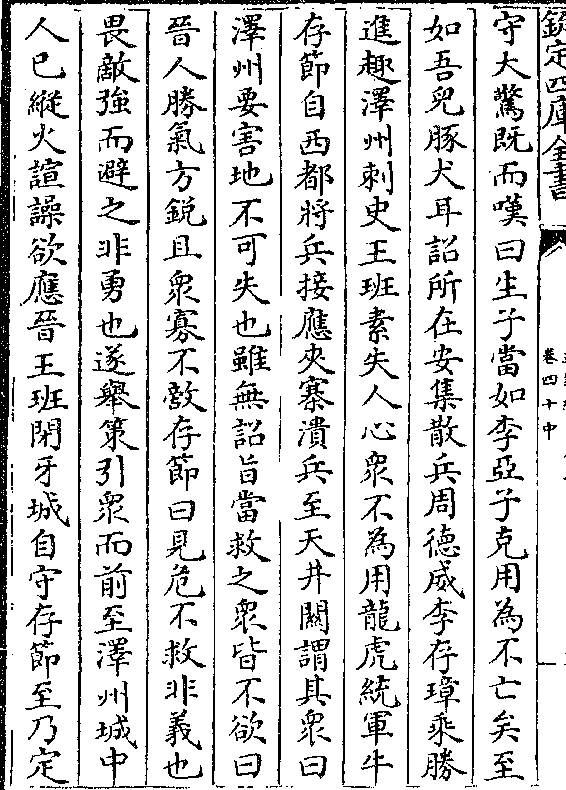 欽定四庫全書
卷四十中
守大驚既而嘆曰生子當如李亞子克用為不亡矣至
如吾兒豚犬耳詔所在安集散兵周德威李存璋乘勝
進趣澤州刺史王班素失人心衆不為用龍虎統軍牛
存節自西都將兵接應夾寨潰兵至天井關謂其衆曰
澤州要害地不可失也雖無詔旨當救之衆皆不欲曰
晉人勝氣方鋭且衆寡不敵存節曰見危不救非義也
畏敵強而避之非勇也遂舉策引衆而前至澤州城中
人已縱火諠譟欲應晉王班閉牙城自守存節至乃定